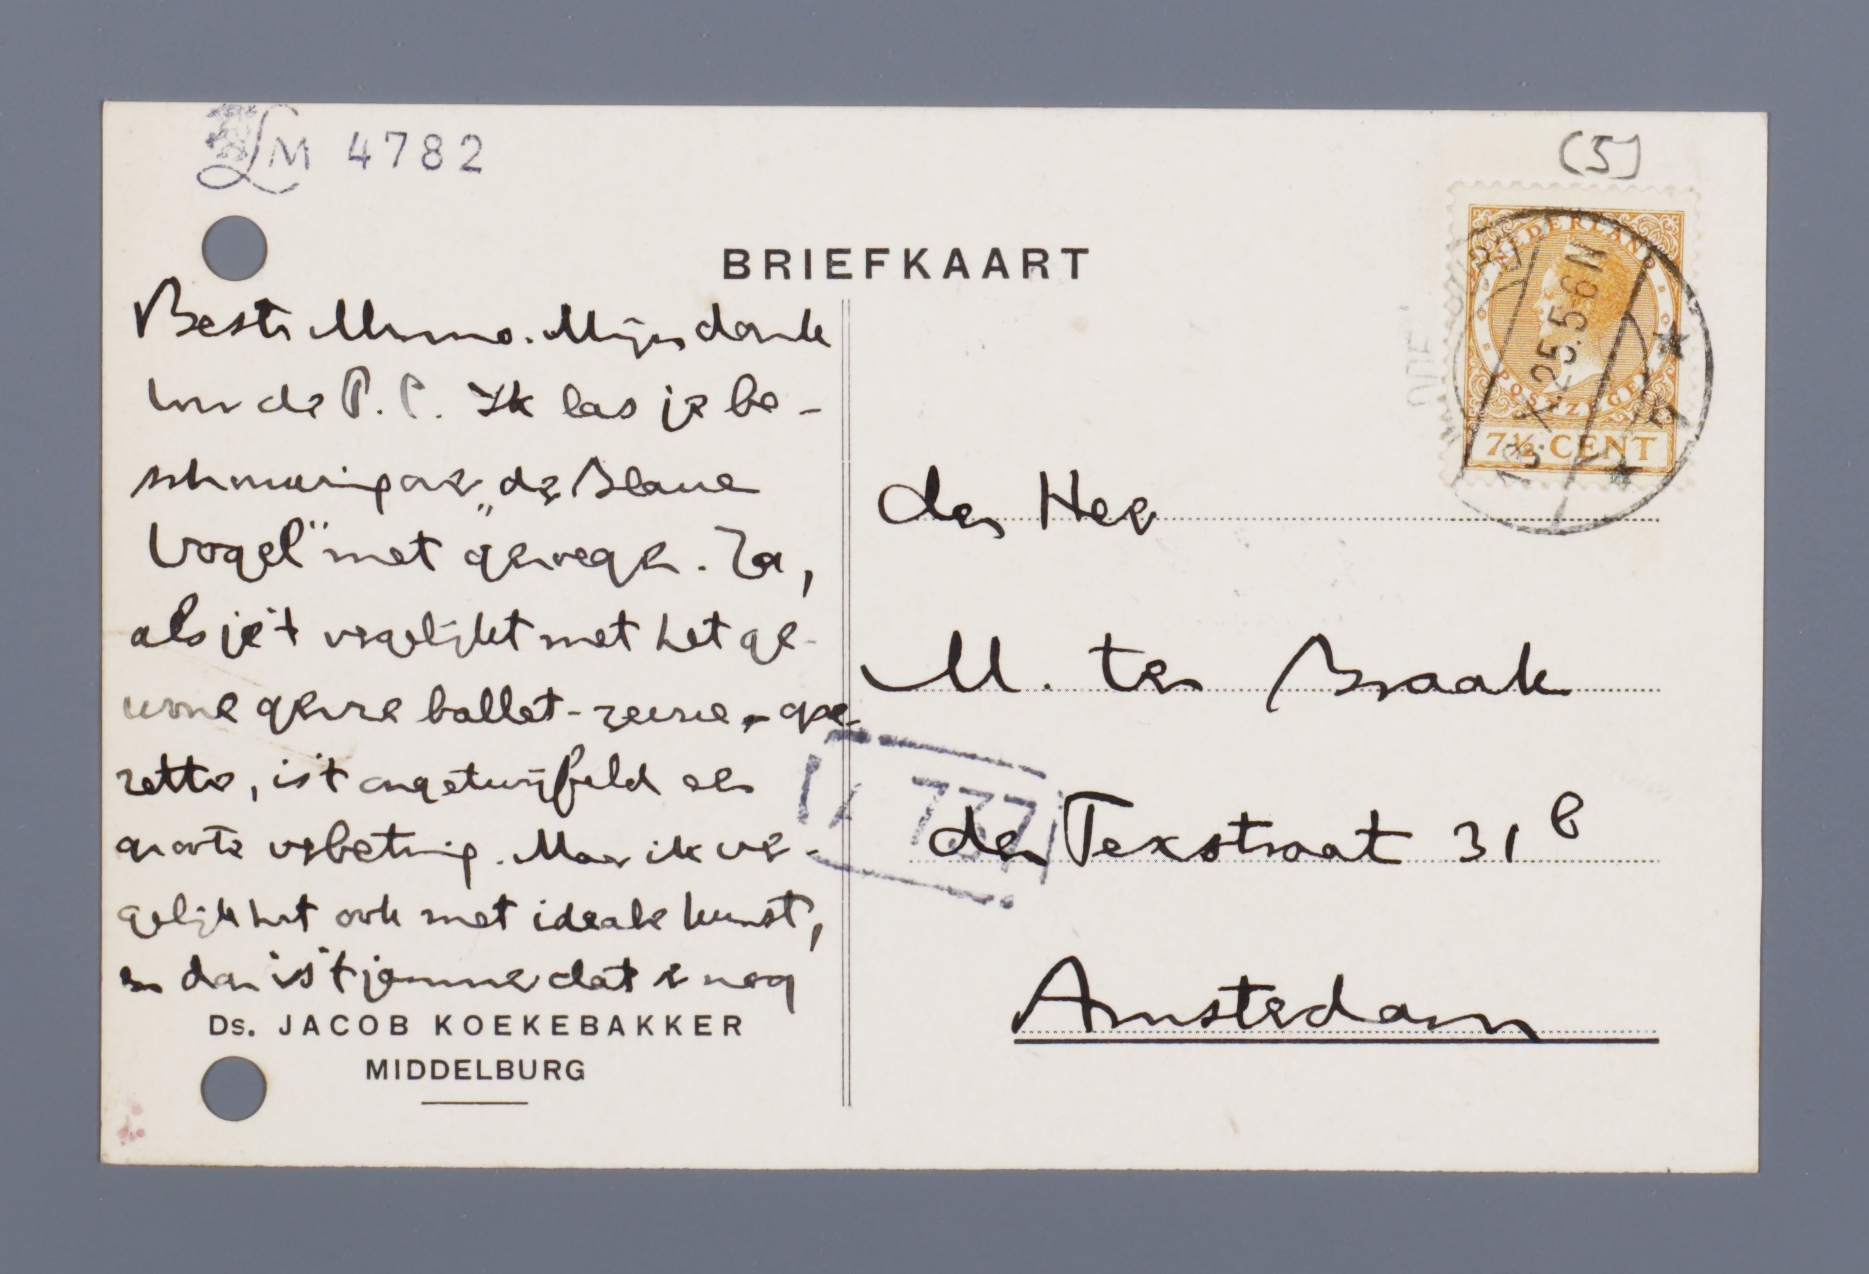 LM 4782
(5)
BRIEFKAART
NEDERLAND
POSTZEGEL
7½ CENT
X.25.5-6N
Beste Menno. Mijn dank
voor de P.C. Ik las je be-
schouwing over „de Blaue
Vogel” met genoegen. Ja,
als je 't vergelijkt met het ge-
wone genre ballet-revue-ope-
rette, is 't ongetwijfeld een
groote verbetering. Maar ik ver-
gelijk het ook met ideale kunst,
en dan is 't jammer dat er nog
Ds. JACOB KOEKEBAKKER
MIDDELBURG
den Heer
M. ter Braak
den Texstraat 31 b
Amsterdam
737